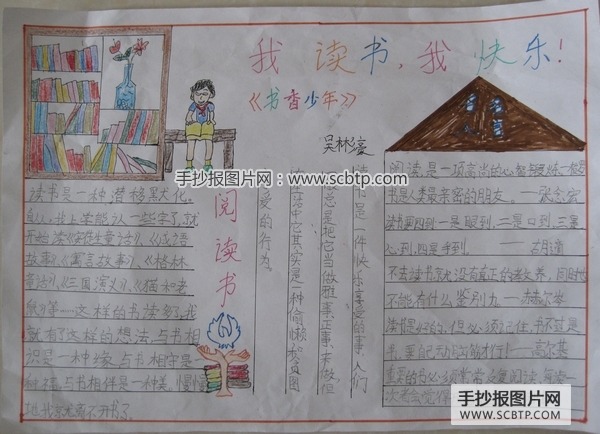 我读书,我快乐!
《书香少年》
手抄报图片网:www.scbtp.com
阅读书
读书是一种潜移默大化。
开始读《安徒生童话》、《成语
故事》《寓言故事》、《格林
童话》、《三国演义》、《猫和老
鼠》等……这样的书读多了我
就有了这样的想法,与书相
识是一种缘,与书相守是
与书相伴是一种美,慢慢
书是一件快乐喜爱的事,人们
总是把它当做雅事正事,来做但
其实是一种偷懒和贪图
爱的行为。
阅读,是一项高尚的心智锻炼
书是人类最亲密的朋友。
读书四到一是眼到,二是口到,三是
心到,四是手到。
不去读书就没有真正的教养,同时也
不能有什么鉴别力—赫尔岑
读书是好的,但必须记住,书不过是
书,要自己动脑筋才行!——高尔基
手抄报图片网
WWW.SCBTP.COM